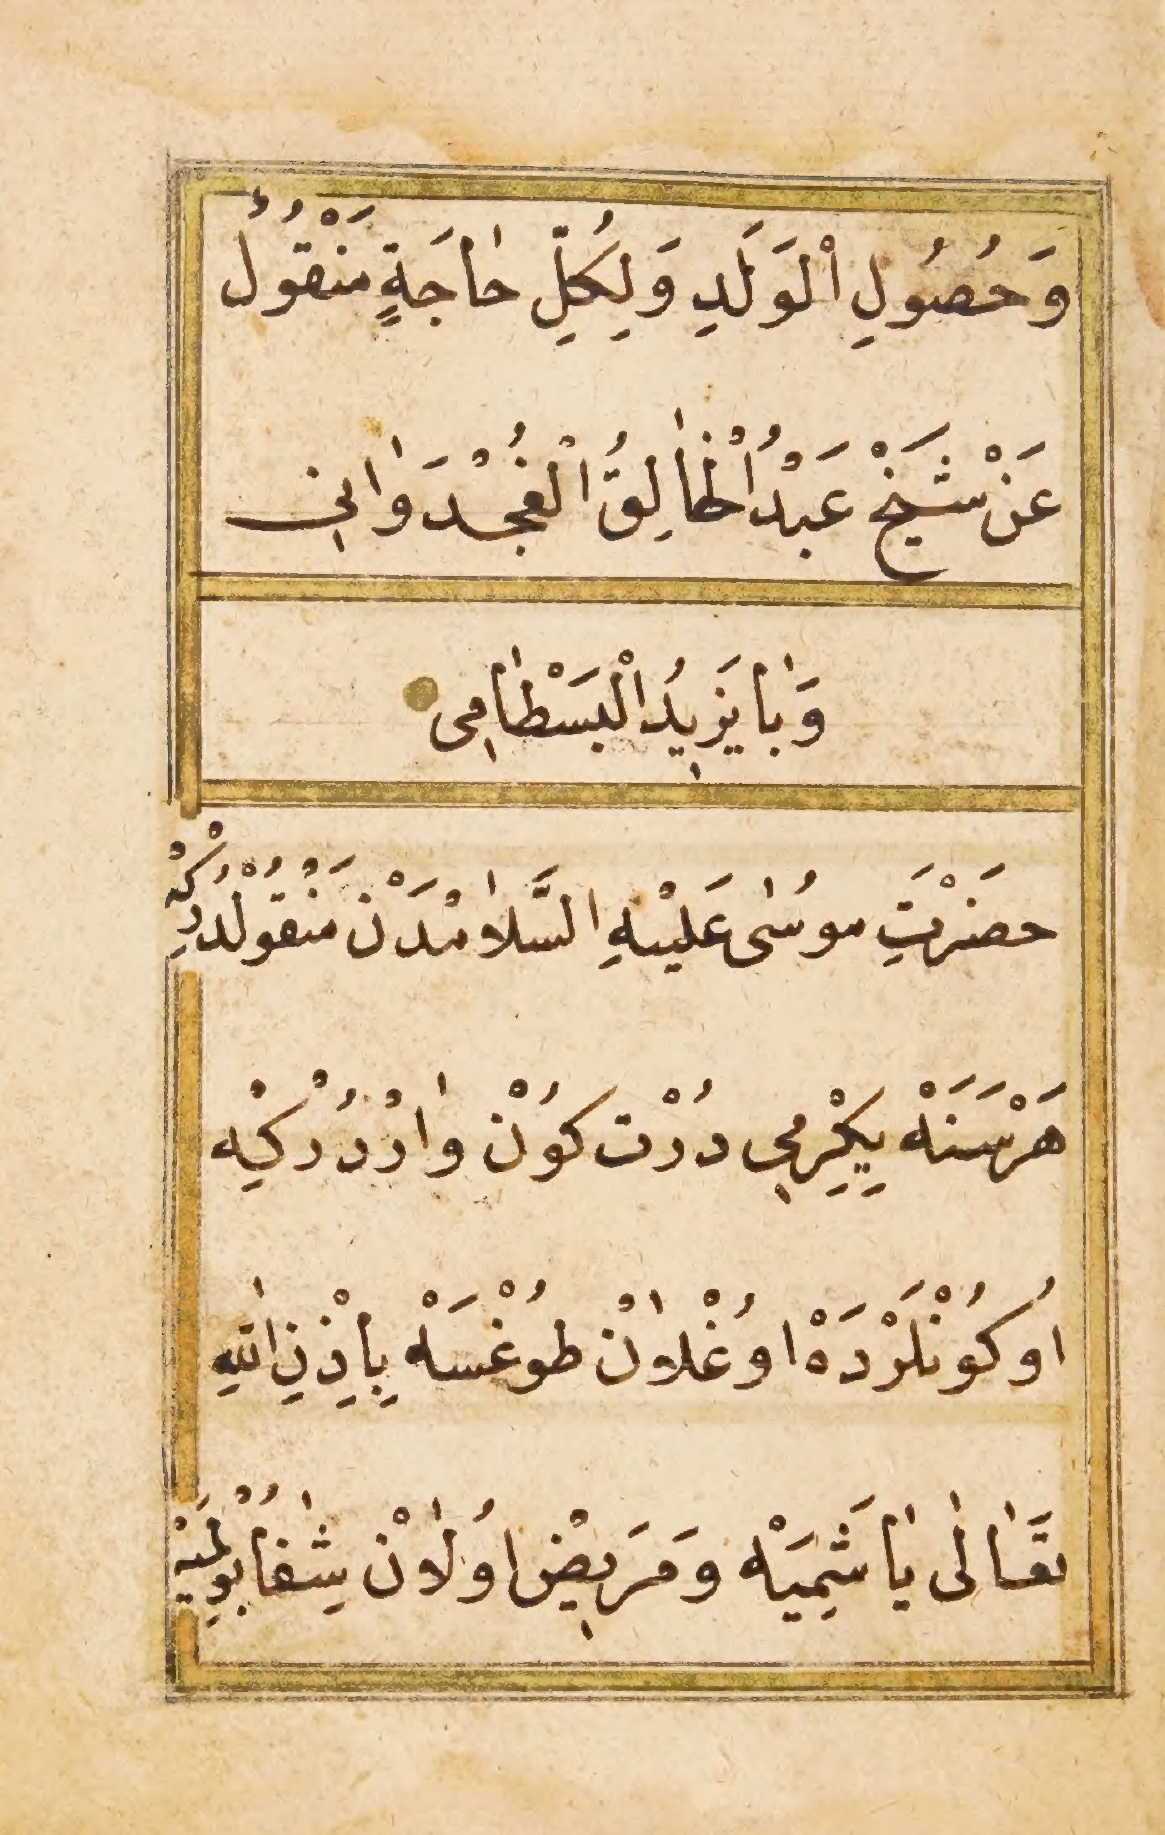 وَحُصُولِ الْوَلَدِ وَلِكُلِّ حٰاجَةٍ مَنْقُولٌ
عَنْ شَيَخْ عَبْدُ الْخٰالِقُ الْغُجْدَوٰانٖى
وَبٰايَزٖيدُ الْبَسْطٰامٖى
حضَرْتَِ موسُٰى عَلَيْهِ السَّلٰامْدَنْ مَنْقُولْدُرُ كِهْ
هَرْ سَنَهْ يِكِرْمٖى دُرْت كُونْ وٰارْدُرْ كِهْ
اُو كُونْلَرْدَهْ اوُغْلٰانْ طوُغْسَهْ بِاِذْنِ اللّٰهِ
تَعَٰالٰى يٰاشَمِيَهْ وَمَرَيٖضْ اوُلٰانْ شِفٰا بُولْمَيَهْ